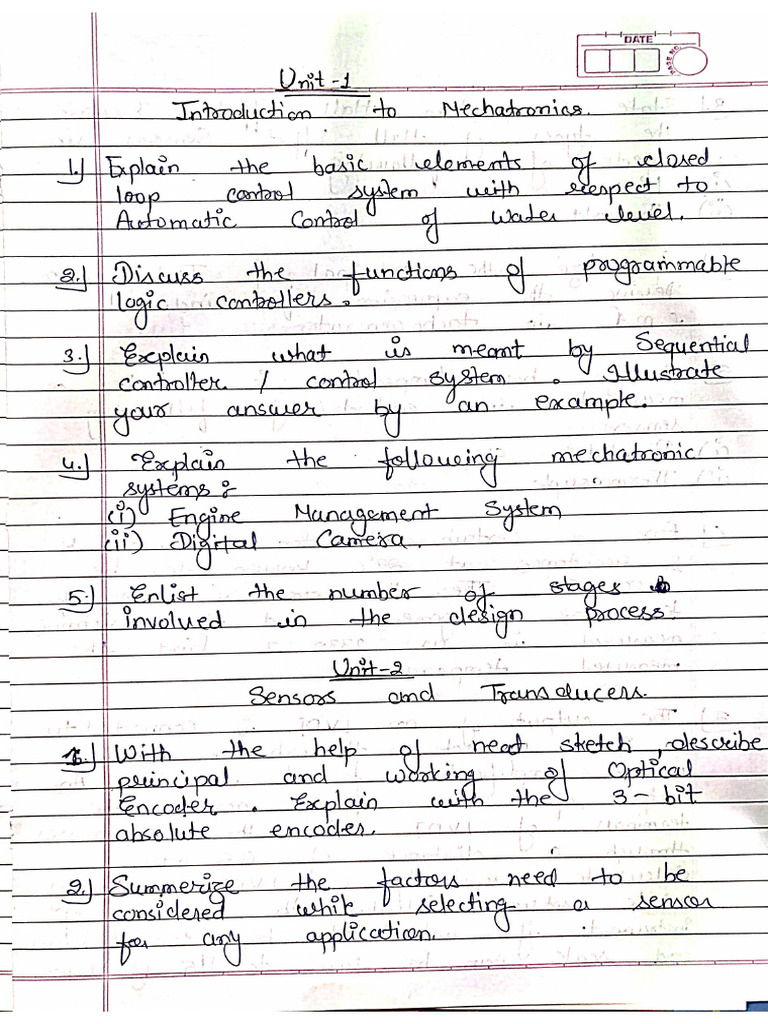 DATE
PAGE NO.
Unit-1
Introduction to Mechatronics.
1.) Explain the basic elements of closed
loop control system with respect to
Automatic Control of water level.
2.) Discuss the functions of programmable
logic controllers.
3.) Explain what is meant by Sequential
controller / control system. Illustrate
your answer by an example.
4.) Explain the following mechatronic
systems:
(i) Engine Management System
(ii) Digital Camera.
5.) Enlist the number of stages
involved in the design process.
Unit-2
Sensors and Transducers.
1.) With the help of neat sketch, describe
principal and working of Optical
Encoder. Explain with the 3-bit
absolute encoder.
2.) Summerize the factors need to be
considered while selecting a sensor
for any application.